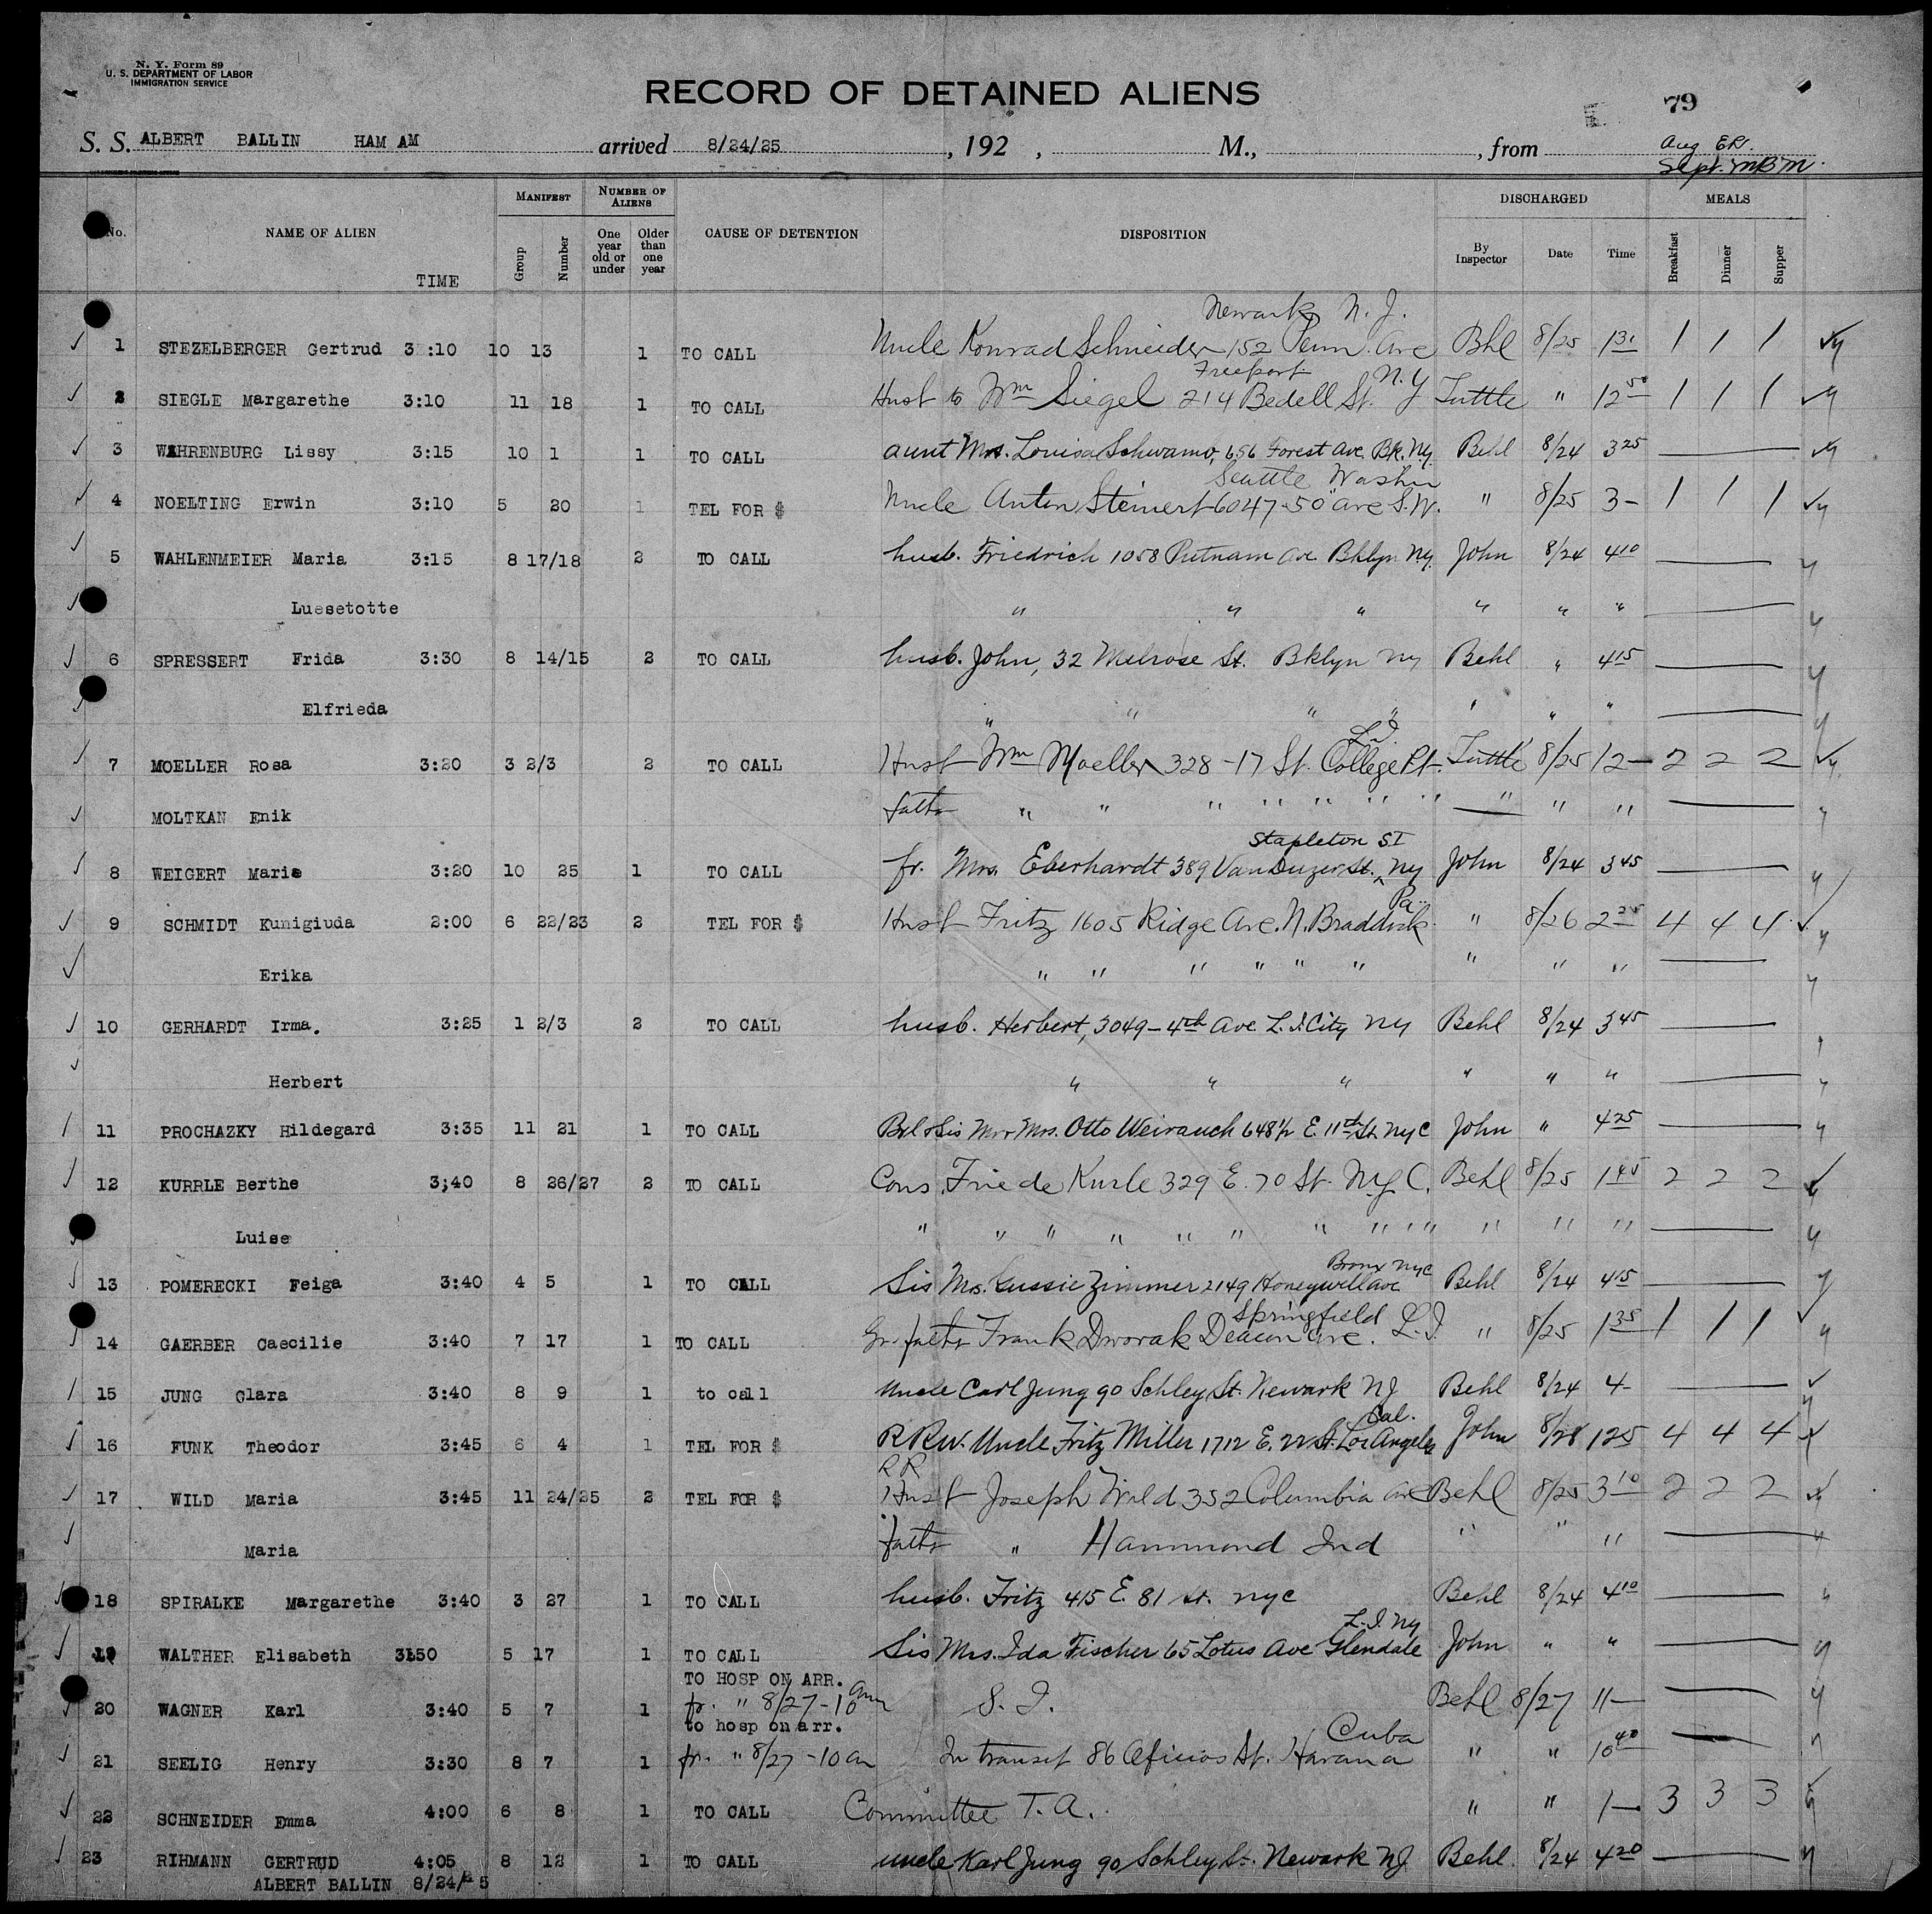 N. Y. Form 89
U. S. DEPARTMENT OF LABOR
IMMIGRATION SERVICE
RECORD OF DETAINED ALIENS
79
S. S. ALBERT BALLIN HAM AM arrived 8/24/25, 192 , M., from
Aug ER.
Sept. MBM.
No. NAME OF ALIEN TIME MANIFEST Group Number NUMBER OF ALIENS One year old or under Older than one year CAUSE OF DETENTION DISPOSITION DISCHARGED By Inspector Date Time MEALS Breakfast Dinner Supper
Newark N. J.
1 STEZELBERGER Gertrud 3 :10 10 13 1 TO CALL Uncle Konrad Schneider 152 Penn. Ave Bhl 8/25 1 31 1 1 1
Freeport N.Y
2 SIEGLE Margarethe 3:10 11 18 1 TO CALL Husb to Wm Siegel 214 Bedell St. Tuttle " 12 50 1 1 1
3 WAHRENBURG Lissy 3:15 10 1 1 TO CALL aunt Mrs. Louisa Schwamo, 656 Forest Ave. Bk. Ny. Behl 8/24 3 25
Seattle Washn
4 NOELTING Erwin 3:10 5 20 1 TEL FOR $ Uncle Anton Steinert 6047-50" ave S.W. " 8/25 3- 1 1 1
5 WAHLENMEIER Maria 3:15 8 17/18 2 TO CALL husb. Friedrich 1058 Putnam Ave. Bklyn Ny. John 8/24 4 10
Luesetotte " " " " " "
6 SPRESSERT Frida 3:30 8 14/15 2 TO CALL husb. John, 32 Melrose St. Bklyn Ny Behl " 4 15
Elfrieda " " " " " " "
L.I
7 MOELLER Rosa 3:20 3 2/3 2 TO CALL Husb Wm Moeller 328-17 St. College Pt. Tuttle 8/25 12- 2 2 2
MOLTKAN Enik fathr " " " " " " " " " "
Stapleton SI
8 WEIGERT Marie 3:20 10 25 1 TO CALL fr. Mrs. Eberhardt 389 VanDuzer St. Ny John 8/24 3 45
Pa.
9 SCHMIDT Kunigiuda 2:00 6 22/23 2 TEL FOR $ Husb Fritz 1605 Ridge Ave. N. Braddock " 8/26 2 25 4 4 4
Erika " " " " " " " " "
10 GERHARDT Irma. 3:25 1 2/3 2 TO CALL husb. Herbert, 3049-4th Ave L.I. City Ny Behl 8/24 3 45
Herbert " " " " " "
11 PROCHAZKY Hildegard 3:35 11 21 1 TO CALL Bil & Sis Mr & Mrs. Otto Weirauch 648 1/2 E. 11th St. NyC John " 4 25
12 KURRLE Berthe 3;40 8 26/27 2 TO CALL Cous. Friede Kurle 329 E. 70 St. NyC. Behl 8/25 1 45 2 2 2
Luise " " " " " " " " " " " " "
Bronx NyC
13 POMERECKI Feiga 3:40 4 5 1 TO CALL Sis Mrs. Gussie Zimmer 2149 Honeywell Ave Behl 8/24 4 15
Springfield
14 GAERBER Caecilie 3:40 7 17 1 TO CALL Gr. fathr Frank Dworak Deacon Ave. L.I. " 8/25 1 35 1 1 1
15 JUNG Clara 3:40 8 9 1 to call Uncle Carl Jung 90 Schley St. Newark NJ Behl 8/24 4-
Cal.
16 FUNK Theodor 3:45 6 4 1 TEL FOR $ RRW. Uncle Fritz Miller 1712 E. 22 St. Los Angeles John 8/28 1 25 4 4 4
RR
17 WILD Maria 3:45 11 24/25 2 TEL FOR $ Husb Joseph Wild 352 Columbia Ave Behl 8/25 3 10 2 2 2
Maria fathr " Hammond Ind " " "
18 SPIRALKE Margarethe 3:40 3 27 1 TO CALL husb. Fritz 415 E. 81 St. nyc Behl 8/24 4 10
L.I. Ny
19 WALTHER Elisabeth 3:50 5 17 1 TO CALL Sis Mrs. Ida Fischer 65 Lotus Ave Glendale John " "
TO HOSP ON ARR.
20 WAGNER Karl 3:40 5 7 1 fr. " 8/27-10 am S. I. Behl 8/27 11-
to hosp on arr. Cuba
21 SEELIG Henry 3:30 8 7 1 fr. " 8/27-10 am In transit 86 Oficios St. Havana " " 10 40
22 SCHNEIDER Emma 4:00 6 8 1 TO CALL Committee T. A. " " 1- 3 3 3
23 RIHMANN GERTRUD 4:05 8 12 1 TO CALL uncle Karl Jung 90 Schley St. Newark NJ. Behl. 8/24 4 20
ALBERT BALLIN 8/24/25